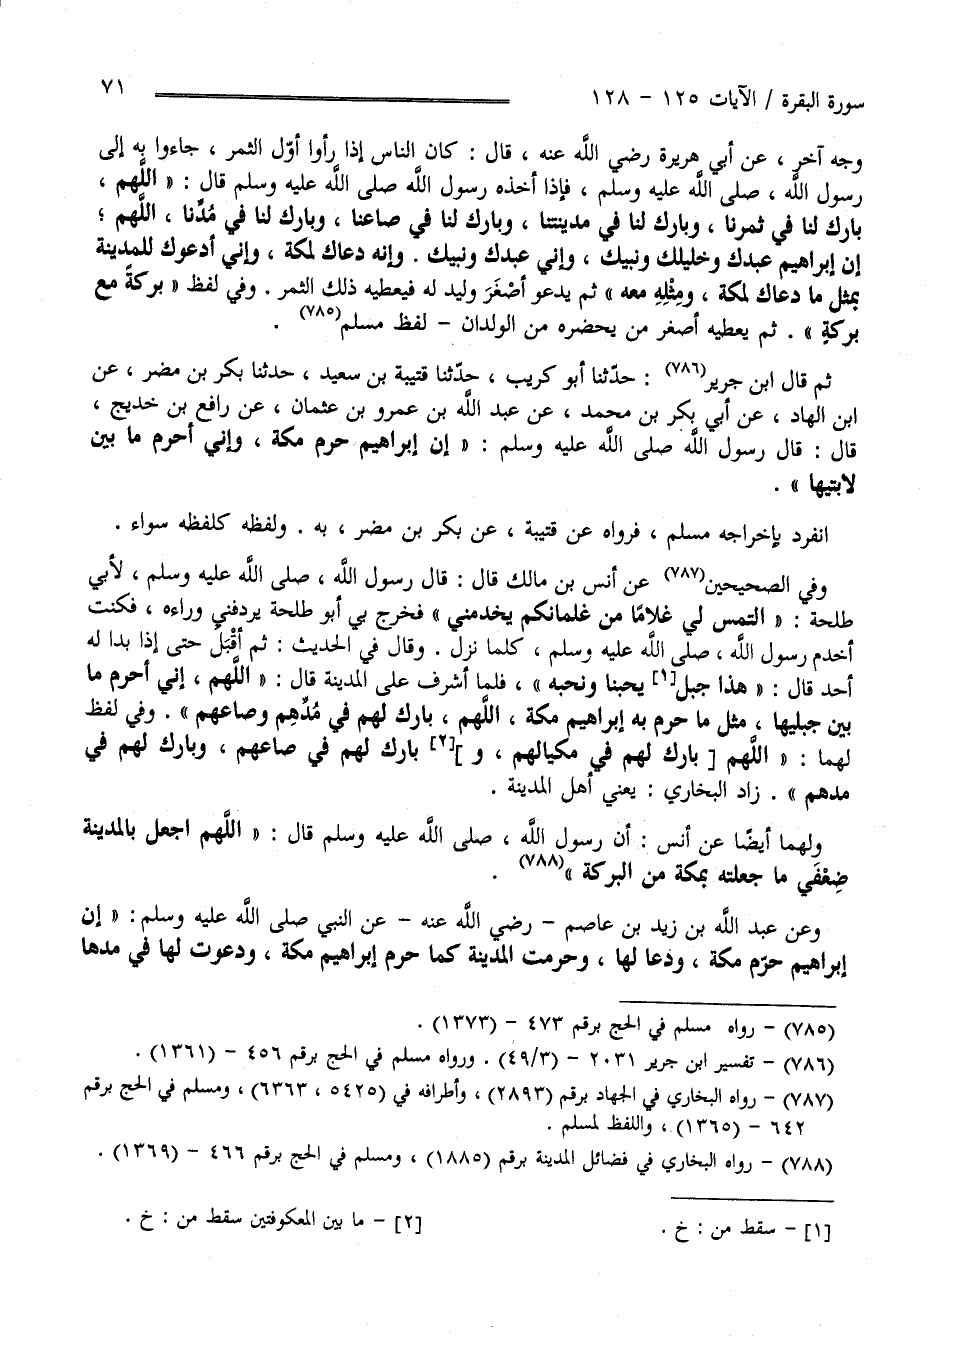 سورة البقرة / الآيات ١٢٥ – ١٢٨ ٧١
وجه آخر ، عن أبي هريرة رضي اللَّه عنه ، قال : كان الناس إذا رأوا أوّل الثمر ، جاءوا به إلى
رسول اللَّه ، صلى اللَّه عليه وسلم ، فإذا أخذه رسول اللَّه صلى اللَّه عليه وسلم قال : « اللَّهم ،
بارك لنا في ثمرنا ، وبارك لنا في مدينتنا ، وبارك لنا في صاعنا ، وبارك لنا في مُدِّنا ، اللَّهم ؛
إن إبراهيم عبدك وخليلك ونبيك ، وإني عبدك ونبيك . وإنه دعاك لمكة ، وإني أدعوك للمدينة
بمثل ما دعاك لمكة ، ومِثْلِهِ معه » ثم يدعو أصْغَرَ وليد له فيعطيه ذلك الثمر . وفي لفظ « بركةً مع
بركةٍ » . ثم يعطيه أصغر من يحضره من الولدان – لفظ مسلم(٧٨٥) .
ثم قال ابن جرير(٧٨٦) : حدّثنا أبو كريب ، حدّثنا قتيبة بن سعيد ، حدثنا بكر بن مضر ، عن
ابن الهاد ، عن أبي بكر بن محمد ، عن عبد اللَّه بن عمرو بن عثمان ، عن رافع بن خديج ،
قال : قال رسول اللَّه صلى اللَّه عليه وسلم : « إن إبراهيم حرم مكة ، وإني أحرم ما بين
لابتيها » .
انفرد بإخراجه مسلم ، فرواه عن قتيبة ، عن بكر بن مضر ، به . ولفظه كلفظه سواء .
وفي الصحيحين(٧٨٧) عن أنس بن مالك قال : قال رسول اللَّه ، صلى اللَّه عليه وسلم ، لأبي
طلحة : « التمس لي غلامًا من غلمانكم يخدمني » فخرج بي أبو طلحة يردفني وراءه ، فكنت
أخدم رسول اللَّه ، صلى اللَّه عليه وسلم ، كلما نزل . وقال في الحديث : ثم أقْبَلَ حتى إذا بدا له
أحد قال : « هذا جبل[١] يحبنا ونحبه » ، فلما أشرف على المدينة قال : « اللَّهم ، إني أحرم ما
بين جبليها ، مثل ما حرم به إبراهيم مكة ، اللَّهم ، بارك لهم في مُدِّهِم وصاعهم » . وفي لفظ
لهما : « اللَّهم [ بارك لهم في مكيالهم ، و ][٢] بارك لهم في صاعهم ، وبارك لهم في
مدهم » . زاد البخاري : يعني أهل المدينة .
ولهما أيضًا عن أنس : أن رسول اللَّه ، صلى اللَّه عليه وسلم قال : « اللَّهم اجعل بالمدينة
ضِعْفَي ما جعلته بمكة من البركة »(٧٨٨) .
وعن عبد اللَّه بن زيد بن عاصم – رضي اللَّه عنه – عن النبي صلى اللَّه عليه وسلم: « إن
إبراهيم حرّم مكة ، ودعا لها ، وحرمت المدينة كما حرم إبراهيم مكة ، ودعوت لها في مدها
(٧٨٥) – رواه مسلم في الحج برقم ٤٧٣ – (١٣٧٣) .
(٧٨٦) – تفسير ابن جرير ٢٠٣١ – (٤٩/٣) . ورواه مسلم في الحج برقم ٤٥٦ – (١٣٦١) .
(٧٨٧) – رواه البخاري في الجهاد برقم (٢٨٩٣) ، وأطرافه في (٥٤٢٥ ، ٦٣٦٣) ، ومسلم في الحج برقم
٦٤٢ – (١٣٦٥) ، واللفظ لمسلم .
(٧٨٨) – رواه البخاري في فضائل المدينة برقم (١٨٨٥) ، ومسلم في الحج برقم ٤٦٦ – (١٣٦٩) .
[١] – سقط من : خ . [٢] – ما بين المعكوفتين سقط من : خ .